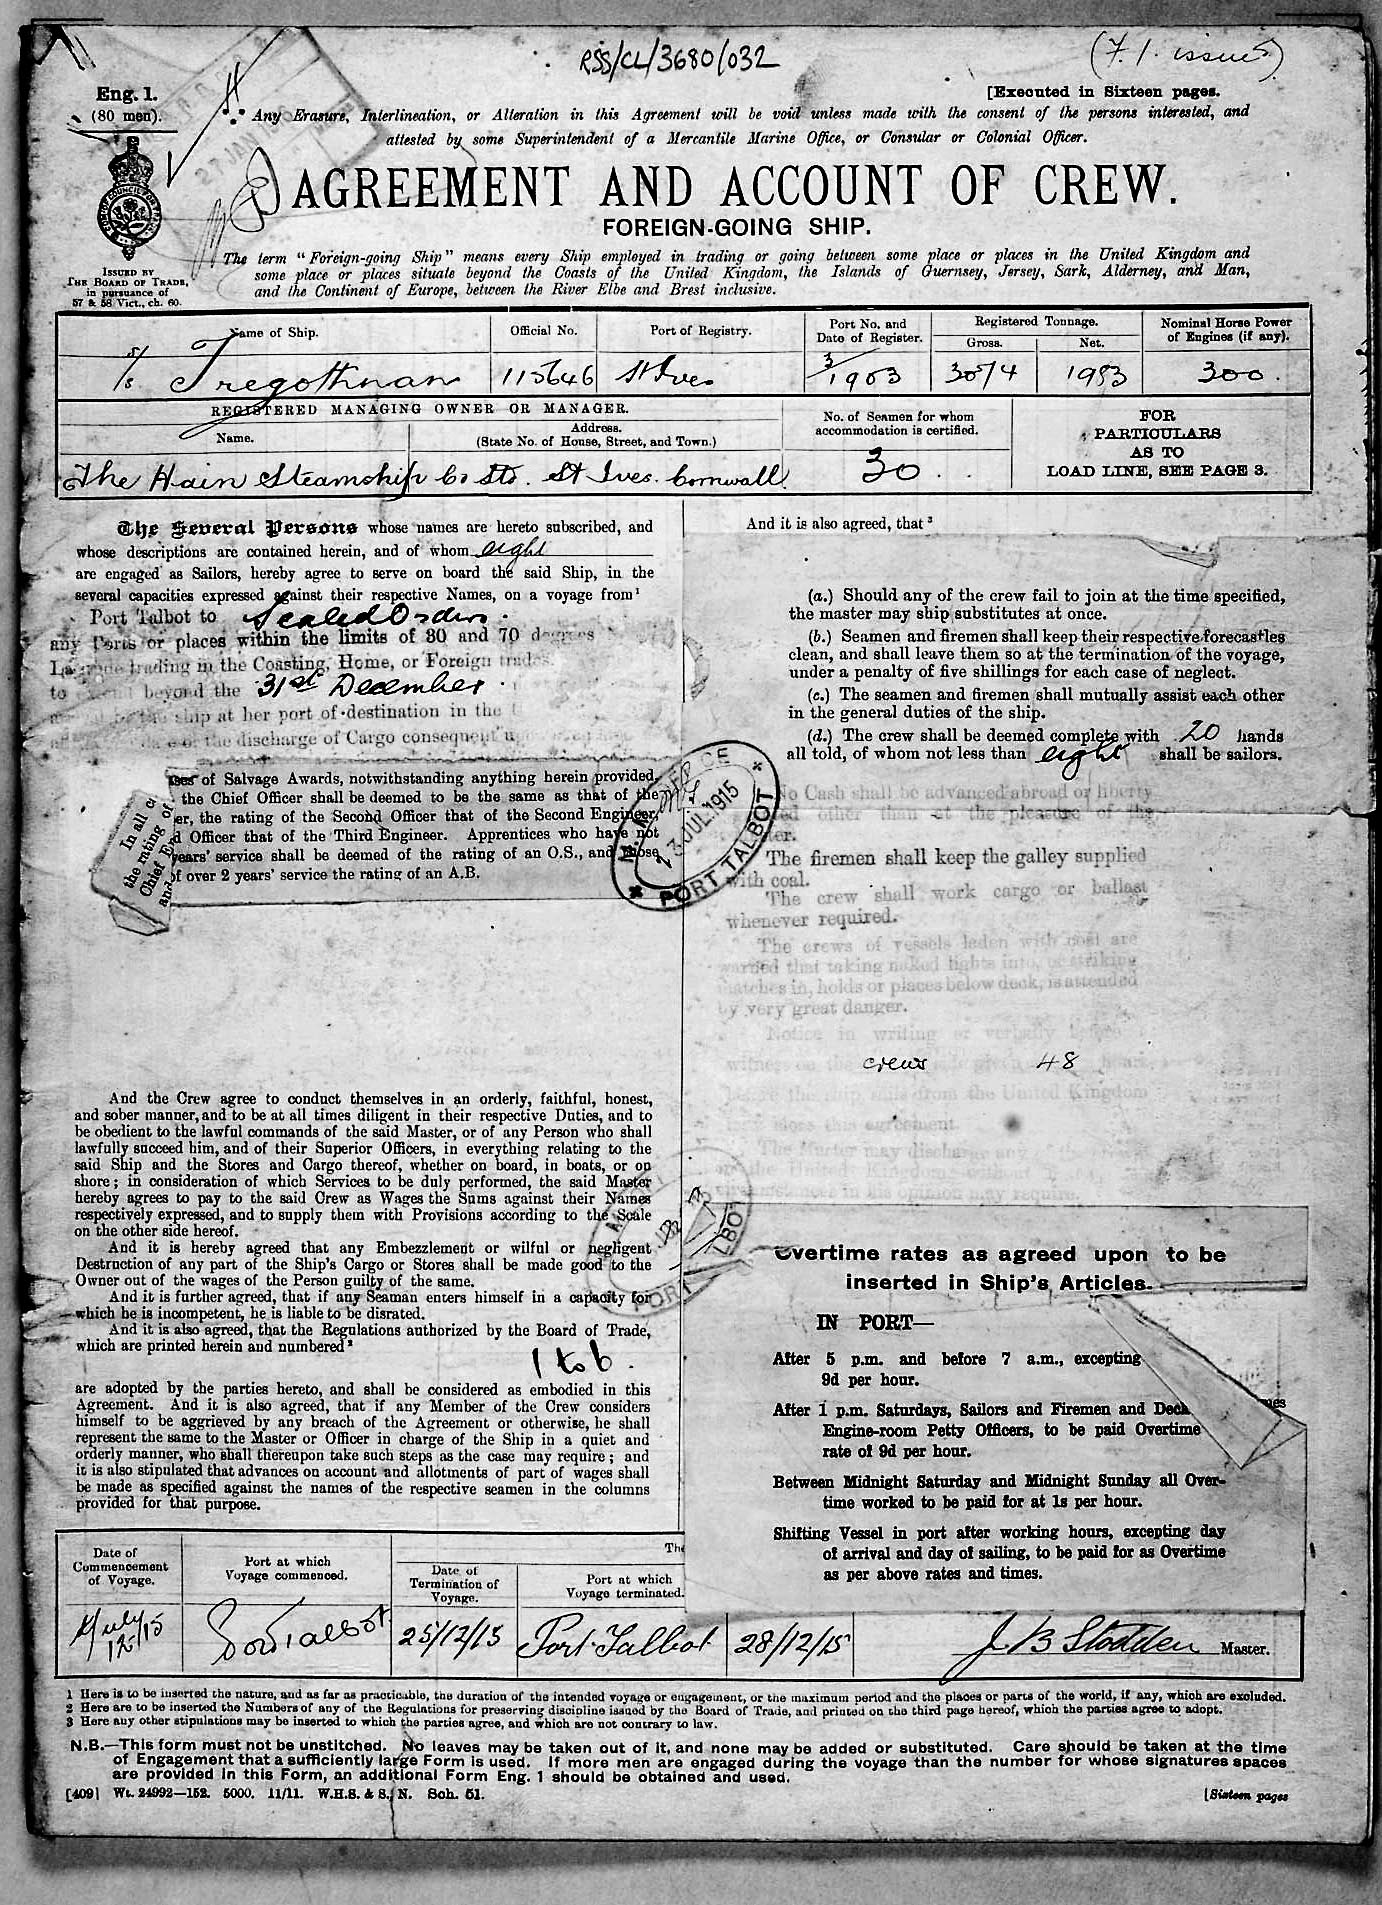 RSS/CL/3680/032
(F.1. issues)
Eng. 1.
(80 men).
[Executed in Sixteen pages.
Any Erasure, Interlineation, or Alteration in this Agreement will be void unless made with the consent of the persons interested, and
attested by some Superintendent of a Mercantile Marine Office, or Consular or Colonial Officer.
27 JAN
AGREEMENT AND ACCOUNT OF CREW.
FOREIGN-GOING SHIP.
ISSUED BY
THE BOARD OF TRADE,
in pursuance of
57 & 58 Vict., ch. 60.
The term "Foreign-going Ship" means every Ship employed in trading or going between some place or places in the United Kingdom and
some place or places situate beyond the Coasts of the United Kingdom, the Islands of Guernsey, Jersey, Sark, Alderney, and Man,
and the Continent of Europe, between the River Elbe and Brest inclusive.
Name of Ship. Official No. Port of Registry. Port No. and Date of Register. Registered Tonnage. Gross. Net. Nominal Horse Power of Engines (if any).
S/S Tregothnan 115646 St Ives 3/1903 3074 1983 300.
REGISTERED MANAGING OWNER OR MANAGER.
Name. Address. (State No. of House, Street, and Town.)
No. of Seamen for whom accommodation is certified.
The Hain Steamship Co Ltd. St Ives. Cornwall. 30
FOR
PARTICULARS
AS TO
LOAD LINE, SEE PAGE 3.
The Several Persons whose names are hereto subscribed, and
whose descriptions are contained herein, and of whom eight
are engaged as Sailors, hereby agree to serve on board the said Ship, in the
several capacities expressed against their respective Names, on a voyage from¹
Port Talbot to Sealed Orders.
any Ports or places within the limits of 80 and 70 degrees
trading in the Coasting, Home, or Foreign trades.
to beyond the 31st December
ship at her port of destination in the
or the discharge of Cargo consequent
of Salvage Awards, notwithstanding anything herein provided,
the Chief Officer shall be deemed to be the same as that of the
er, the rating of the Second Officer that of the Second Engineer,
d Officer that of the Third Engineer. Apprentices who have not
years' service shall be deemed of the rating of an O.S., and those
of over 2 years' service the rating of an A.B.
In all c
the rating of
Chief En
and
And the Crew agree to conduct themselves in an orderly, faithful, honest,
and sober manner, and to be at all times diligent in their respective Duties, and to
be obedient to the lawful commands of the said Master, or of any Person who shall
lawfully succeed him, and of their Superior Officers, in everything relating to the
said Ship and the Stores and Cargo thereof, whether on board, in boats, or on
shore; in consideration of which Services to be duly performed, the said Master
hereby agrees to pay to the said Crew as Wages the Sums against their Names
respectively expressed, and to supply them with Provisions according to the Scale
on the other side hereof.
And it is hereby agreed that any Embezzlement or wilful or negligent
Destruction of any part of the Ship's Cargo or Stores shall be made good to the
Owner out of the wages of the Person guilty of the same.
And it is further agreed, that if any Seaman enters himself in a capacity for
which he is incompetent, he is liable to be disrated.
And it is also agreed, that the Regulations authorized by the Board of Trade,
which are printed herein and numbered²
1 to 6.
are adopted by the parties hereto, and shall be considered as embodied in this
Agreement. And it is also agreed, that if any Member of the Crew considers
himself to be aggrieved by any breach of the Agreement or otherwise, he shall
represent the same to the Master or Officer in charge of the Ship in a quiet and
orderly manner, who shall thereupon take such steps as the case may require; and
it is also stipulated that advances on account and allotments of part of wages shall
be made as specified against the names of the respective seamen in the columns
provided for that purpose.
And it is also agreed, that³
(a.) Should any of the crew fail to join at the time specified,
the master may ship substitutes at once.
(b.) Seamen and firemen shall keep their respective forecastles
clean, and shall leave them so at the termination of the voyage,
under a penalty of five shillings for each case of neglect.
(c.) The seamen and firemen shall mutually assist each other
in the general duties of the ship.
(d.) The crew shall be deemed complete with 20 hands
all told, of whom not less than eight shall be sailors.
No Cash shall be advanced abroad or liberty
other than at the pleasure of the
ter.
The firemen shall keep the galley supplied
with coal.
The crew shall work cargo or ballast
whenever required.
The crews of vessels laden with coal are
warned that taking naked lights into, or striking
matches in, holds or places below deck, is attended
by very great danger.
Notice in writing or verbally
crews 48
the ship sails from the United Kingdom
this agreement.
The Master may discharge any
in his opinion may require.
23 JUL 1915
PORT TALBOT
PORT
Overtime rates as agreed upon to be
inserted in Ship's Articles.
IN PORT—
After 5 p.m. and before 7 a.m., excepting
9d per hour.
After 1 p.m. Saturdays, Sailors and Firemen and Deck
Engine-room Petty Officers, to be paid Overtime
rate of 9d per hour.
Between Midnight Saturday and Midnight Sunday all Over-
time worked to be paid for at 1s per hour.
Shifting Vessel in port after working hours, excepting day
of arrival and day of sailing, to be paid for as Overtime
as per above rates and times.
Date of Commencement of Voyage. Port at which Voyage commenced. Date of Termination of Voyage. Port at which Voyage terminated. The
July 15 Port Talbot 25/12/15 Port Talbot 28/12/15 J B Stodden Master.
1 Here is to be inserted the nature, and as far as practicable, the duration of the intended voyage or engagement, or the maximum period and the places or parts of the world, if any, which are excluded.
2 Here are to be inserted the Numbers of any of the Regulations for preserving discipline issued by the Board of Trade, and printed on the third page hereof, which the parties agree to adopt.
3 Here any other stipulations may be inserted to which the parties agree, and which are not contrary to law.
N.B.—This form must not be unstitched. No leaves may be taken out of it, and none may be added or substituted. Care should be taken at the time
of Engagement that a sufficiently large Form is used. If more men are engaged during the voyage than the number for whose signatures spaces
are provided in this Form, an additional Form Eng. 1 should be obtained and used.
[409] Wt. 24992—152. 5000. 11/11. W.H.S. & S., N. Sch. 51.
[Sixteen pages